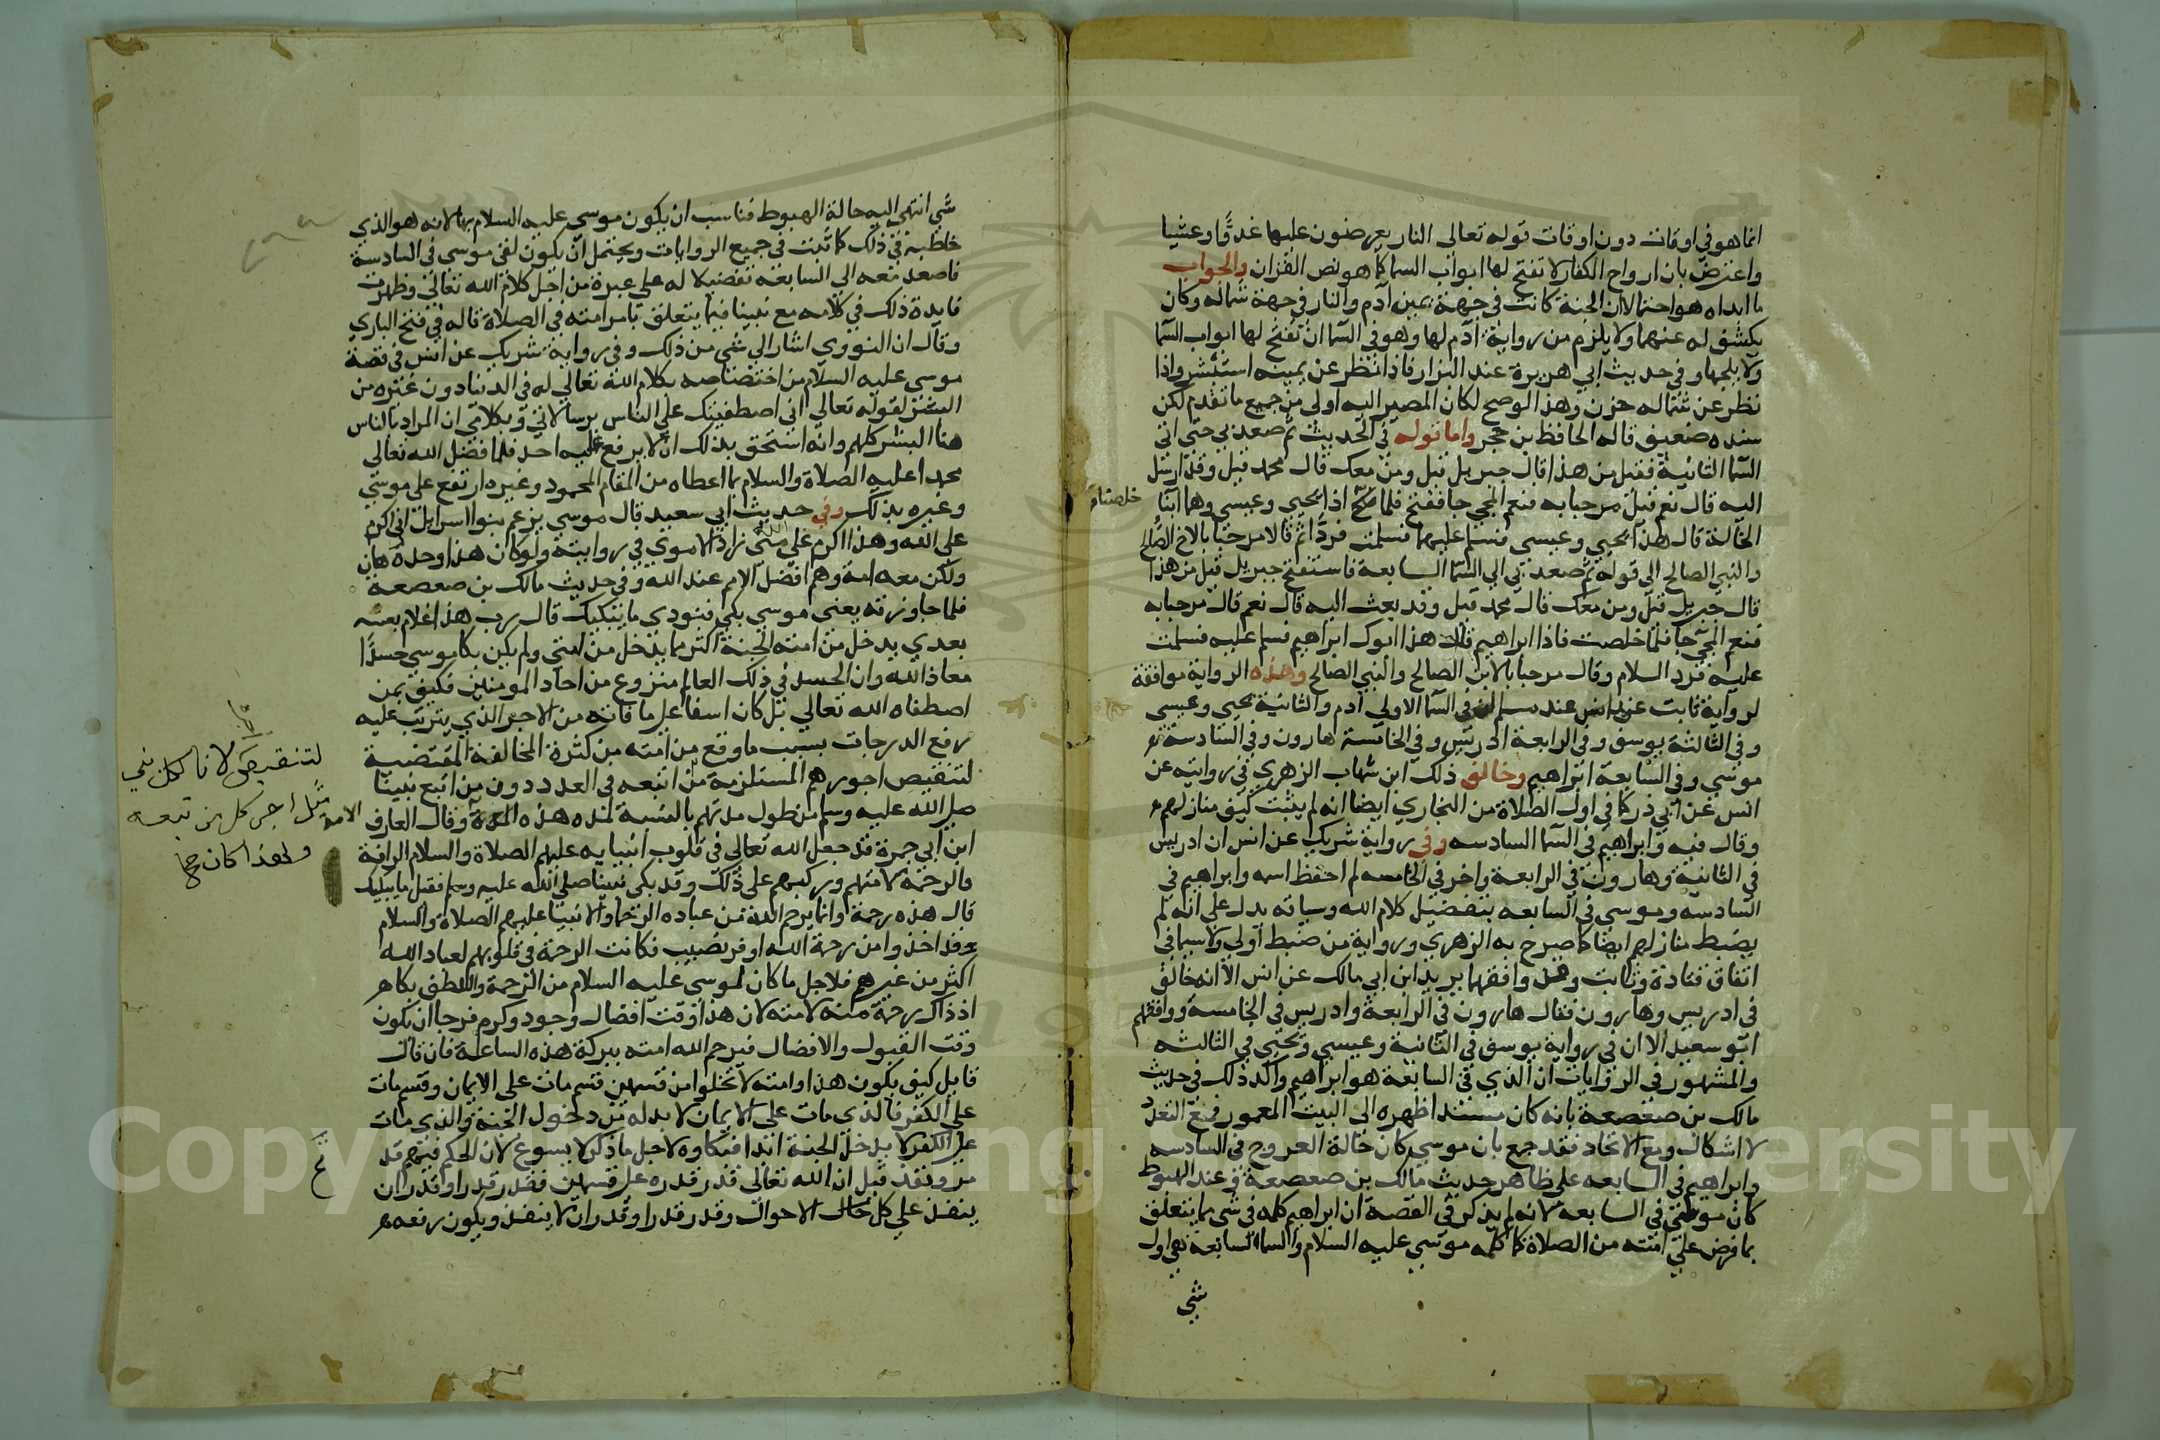 انما هو في اوقات دون اوقات قوله تعالى النار يعرضون عليها غدوا وعشيا
واعترض بان ارواح الكفار لا تفتح لها ابواب السما كما هو نص القران والجواب
ما ابداه هو احتمالا ان الجنة كانت في جهة يمين آدم والنار في جهة شماله وكان
يكشف له عنهما ولا يلزم من رواية آدم لها وهو في السما ان تفتح لها ابواب السما
ولا يلجها وفي حديث ابي هريرة عند البزار فاذا نظر عن يمينه استبشر واذا
نظر عن شماله حزن وهذا لو صح لكان المصير اليه اولى من جميع ما تقدم لكن
سنده ضعيف قاله الحافظ بن حجر واما قوله في الحديث ثم صعد بي حتي اتي
السما الثانية فقيل من هذا قال جبريل قيل ومن معك قال محمد قيل وقد ارسل
اليه قال نعم قيل مرحبا به فنعم المجي جا ففتح فلما خلصت اذا يحيي وعيسى وهما ابنا
الخالة قال هذا يحيي وعيسى فسلم عليهما فسلمت فردا ثم قالا مرحبا بالاخ الصالح
والنبي الصالح الي قوله ثم صعد بي الي السما السابعة فاستفتح جبريل قيل من هذا
قال جبريل قيل ومن معك قال محمد قيل وقد بعث اليه قال نعم قال مرحبا به
فنعم المجي جا فلما خلصت فاذا ابراهيم قال هذا ابوك ابراهيم فسلم عليه فسلمت
عليه فرد السلام وقال مرحبا بالابن الصالح والنبي الصالح وهذه الرواية موافقة
لرواية ثابت عن انس عند مسلم ان في السما الاولي آدم والثانية يحيي وعيسى
وفي الثالثة يوسف وفي الرابعة ادريس وفي الخامسة هارون وفي السادسة
موسي وفي السابعة ابراهيم وخالف ذلك ابن شهاب الزهري في روايته عن
انس عن ابي ذر كما في اول الصلاة من البخاري ايضا انه لم يثبت كيف منازلهم
وقال فيه وابراهيم في السما السادسه وفي رواية شريك عن انس ان ادريس
في الثانية وهارون في الرابعة واخر في الخامسه لم احفظ اسمه وابراهيم في
السادسه وموسي في السابعه بتفضيل كلام الله وسياقه يدل علي انه لم
يضبط منازلهم ايضا كما صرح به الزهري ورواية من ضبط اولي ولا سيما في
اتفاق قتادة وثابت وقد وافقهما يزيد ابن ابي مالك عن انس الا انه خالف
في ادريس وهارون فقال هارون في الرابعة وادريس في الخامسة ووافقهم
ابو سعيد الا ان في رواية يوسف في الثانية وعيسي ويحيي في الثالثه
والمشهور في الروايات ان الذي في السابعة هو ابراهيم واكد ذلك في حديث
مالك بن صعصعة بانه كان مسندا ظهره الى البيت المعمور فمع التعدد
لا اشكال ومع الاتحاد فقد جمع بان موسي كان حالة العروج في السادسه
وابراهيم في السابعه على ظاهر حديث مالك بن صعصعة وعند الهبوط
كان موسي في السابعه لانه لم يذكر في القصة ان ابراهيم كلمه في شي مما يتعلق
بما فرض علي امته من الصلاة كما كلمه موسي عليه السلام والسما السابعة هي اول
شي
شي انتهي اليه حالة الهبوط فناسب ان يكون موسي عليه السلام بها لانه هو الذي
خاطبه في ذلك كما ثبت في جميع الروايات ويحتمل ان يكون لقي موسى في السادسة
فاصعد معه الي السابعة تفضيلا له على غيره من اجل كلام الله تعالى وظهرت
فايدة ذلك في كلامه مع نبينا فيما يتعلق بامر امته في الصلاة قاله في فتح الباري
وقال ان النووي اشار الي شي من ذلك وفي رواية شريك عن انس في قصة
موسي عليه السلام من اختصاصه بكلام الله تعالي له في الدنيا دون غيره من
البشر لقوله تعالى اني اصطفيتك علي الناس برسالاتي وبكلامي ان المراد بالناس
هنا البشر كلهم وانه استحق بذلك ان لا يرفع عليه احد فلما فضل الله تعالي
محمدا عليه الصلاة والسلام بما اعطاه من المقام المحمود وغيره ارتفع على موسي
وغيره بذلك وفي حديث ابي سعيد قال موسي يزعم بنوا اسرايل اني اكرم
علي الله وهذا اكرم علي الله مني زاد الاموي في روايته ولو كان هذا وحده هان
ولكن معه امة وهم افضل الامم عند الله وفي حديث مالك بن صعصعة
فلما جاوزته يعني موسي بكي فنودي ما يبكيك قال رب هذا غلام بعثته
بعدي يدخل من امته الجنة اكثر مما يدخل من امتي ولم يكن بكا موسي حسدا
معاذ الله وان الحسد في ذلك العالم منزوع من احاد المومنين فكيف بمن
اصطفاه الله تعالي بل كان اسفا علي ما فاته من الاجر الذي يترتب عليه
رفع الدرجات بسبب ما وقع من امته من كثرة المخالفة المقتضية
لتنقيص اجورهم المستلزمة من اتبعه في العدد دون من اتبع نبينا
صلى الله عليه وسلم من طول مدتهم بالنسبة لمده هذه الامة وقال العارف
ابن ابي جمرة قد جعل الله تعالي في قلوب انبيايه عليهم الصلاة والسلام الرافة
والرحمة لامتهم وركبهم على ذلك وقد بكى نبينا صلى الله عليه وسلم فقيل ما يبكيك
قال هذه رحمة وانما يرحم الله من عباده الرحما والانبيا عليهم الصلاة والسلام
قد اخذوا من رحمة الله اوفر نصيب فكانت الرحمة في قلوبهم لعباد الله
اكثر من غيرهم فلاجل ما كان لموسي عليه السلام من الرحمة واللطف بكاهر
اذ ذاك رحمة منه لامته لان هذا وقت افضال وجود وكرم فرجا ان يكون
وقت القبول والافضال فيرحم الله امته ببركة هذه الساعة فان قال
قايل كيف يكون هذا وامته لا تخلوا من قسمين قسم مات على الايمان وقسم مات
على الكفر فالذي مات على الايمان لا بد له من دخول الجنة والذي مات
علي الكفر لا يدخل الجنة ابدا فبكاوه لاجل ما ذكر لا يسوغ لان الحكم فيهم قد
مر ونفذ قيل ان الله تعالى قدر قدره على قسمين فقدر قدرا وقدر ان
ينفذ علي كل حال الاحوال وقدر قدرا وقدر ان لا ينفذ ويكون رفعه
لتنقيص لانا لكل نبي
مثل اجر كل من تبعه
ولهذا كان
Copyright © King Saud University